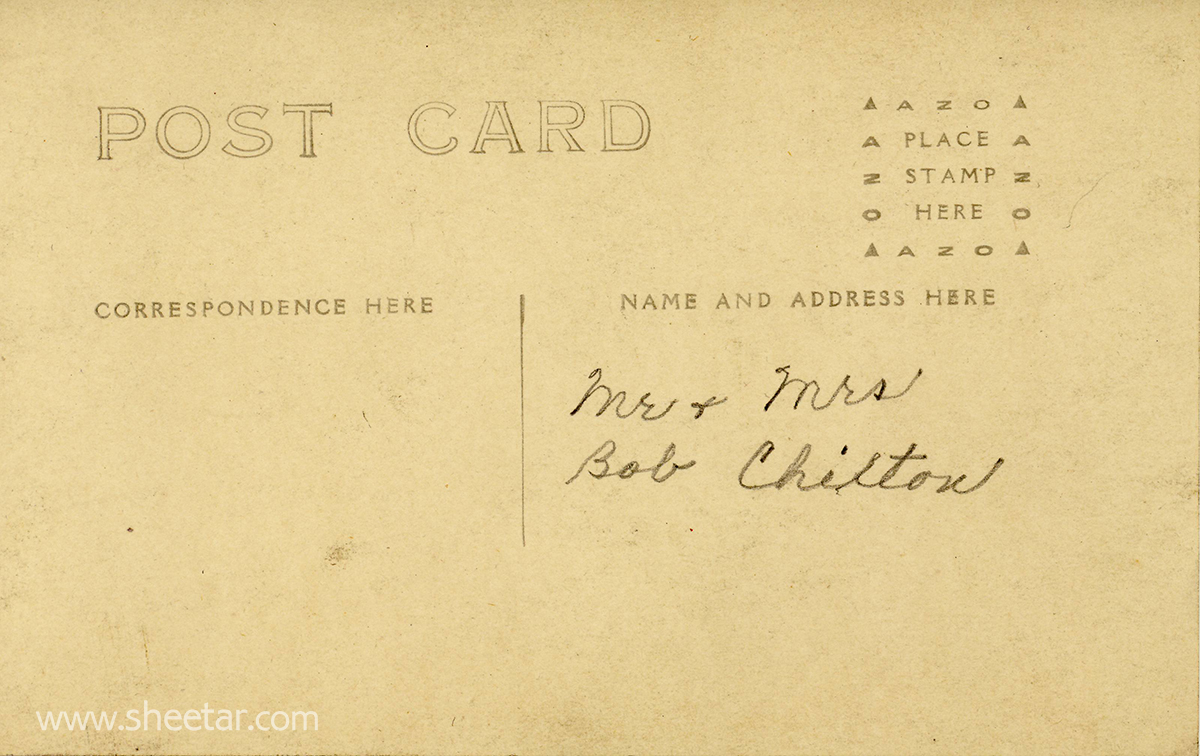 POST CARD
▲ A Z O ▲
A PLACE A
Z STAMP Z
O HERE O
▲ A Z O ▲
CORRESPONDENCE HERE
NAME AND ADDRESS HERE
Mr + Mrs
Bob Chilton
www.sheetar.com